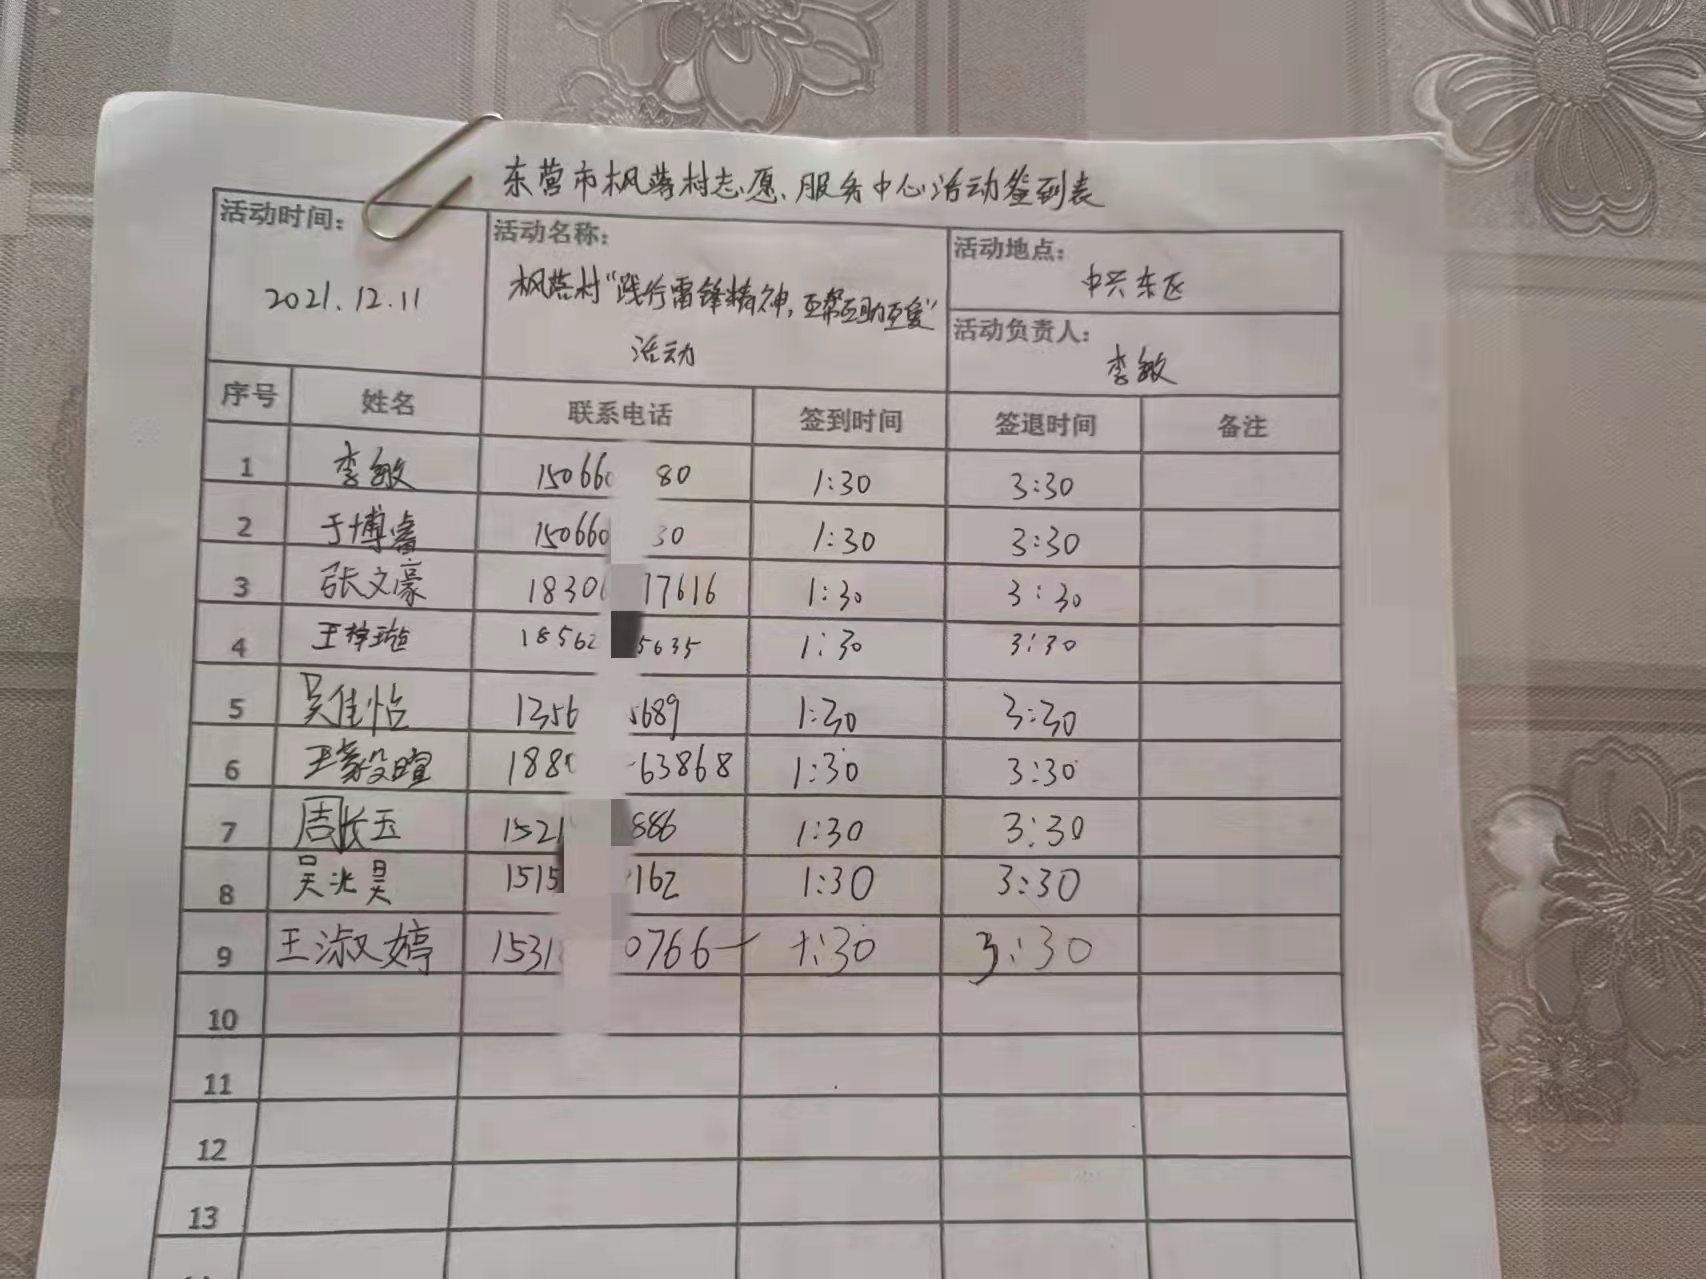 东营市枫落村志愿服务中心活动签到表
活动时间: 活动名称: 活动地点:
2021.12.11 枫落村“践行雷锋精神,互帮互助互爱” 中兴东区
活动 活动负责人:
李敏
序号 姓名 联系电话 签到时间 签退时间 备注
1 李敏 150660 80 1:30 3:30
2 于博睿 150660 30 1:30 3:30
3 张文豪 1830 17616 1:30 3:30
4 王梓璇 18562 5635 1:30 3:30
5 吴佳怡 1356 5689 1:30 3:30
6 王豪毅暄 188 63868 1:30 3:30
7 周长玉 1521 886 1:30 3:30
8 吴兆昊 1515 162 1:30 3:30
9 王淑婷 1531 0766 1:30 3:30
10
11
12
13